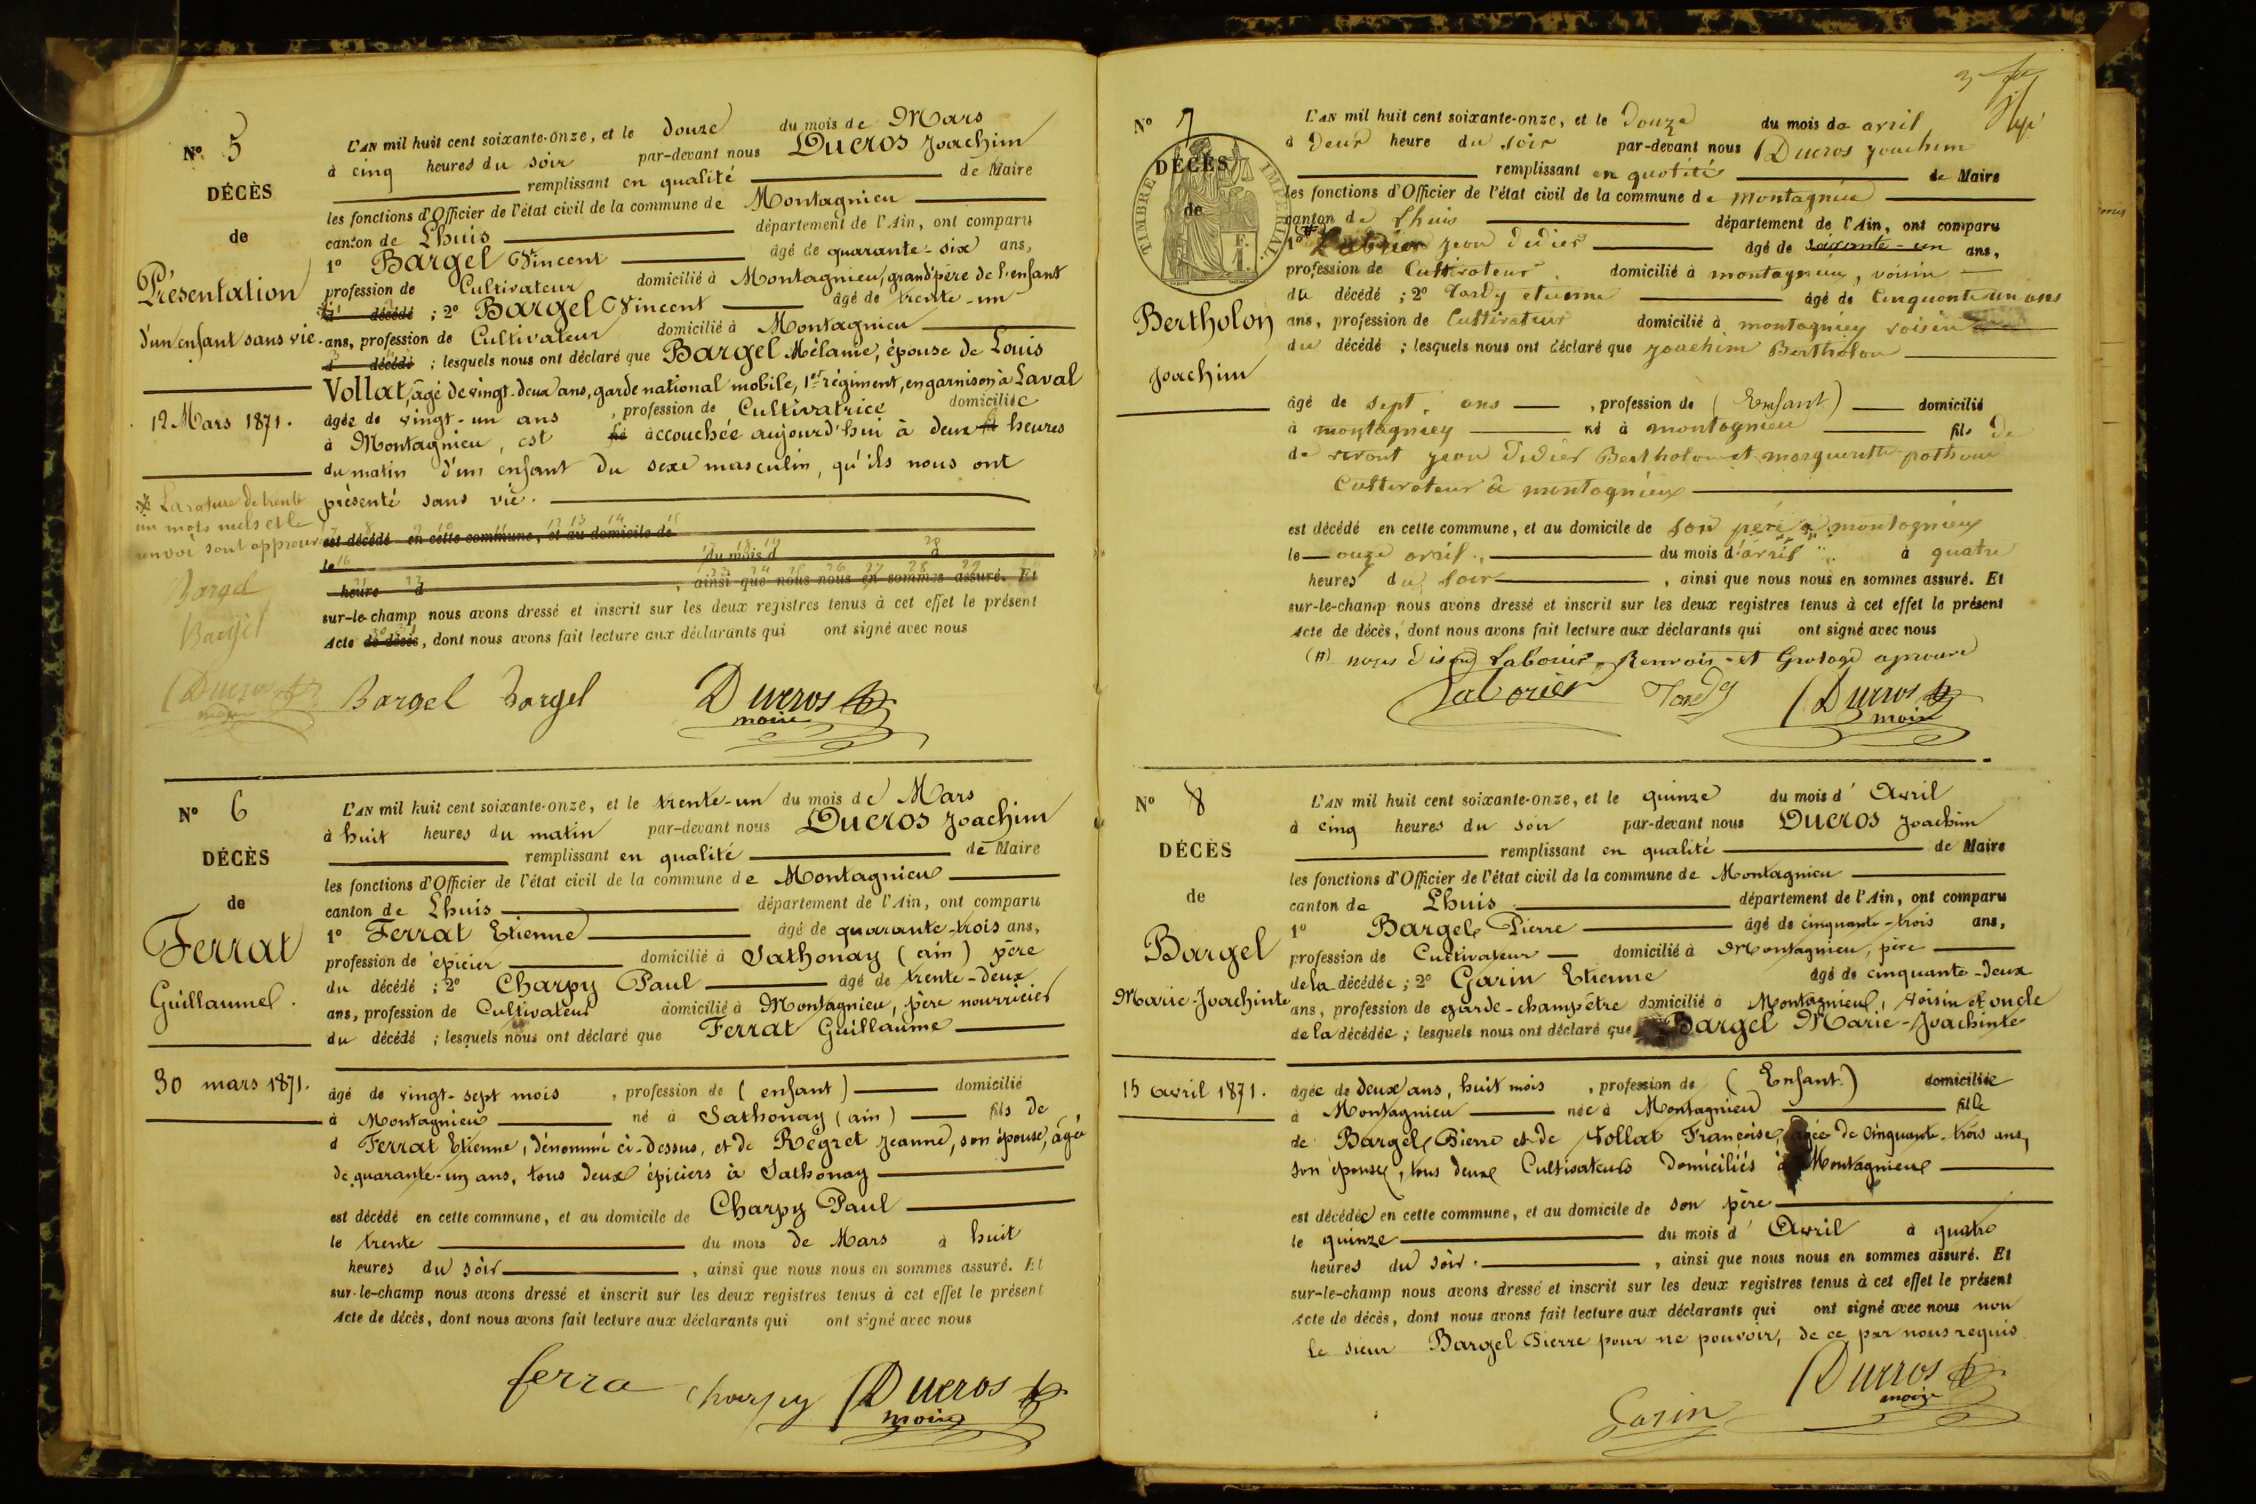 N° 5
DÉCÈS
de
Présentation
d'un enfant sans vie.
12 Mars 1871.
L'AN mil huit cent soixante-onze, et le douze du mois de Mars
à cinq heures du soir par-devant nous Ducros Joachim
remplissant en qualité de Maire
les fonctions d'Officier de l'état civil de la commune de Montagnieu
canton de Lhuis département de l'Ain, ont comparu
1° Bargel Vincent âgé de quarante-six ans,
profession de Cultivateur domicilié à Montagnieu, grand'père de l'enfant
d décédé ; 2° Bargel Vincent âgé de trente-un
ans, profession de Cultivateur domicilié à Montagnieu
d décédé ; lesquels nous ont déclaré que Bargel Mélanie, épouse de Louis
Vollat, âgé de vingt-deux ans, garde national mobile, 1er régiment, en garnison à Laval
âgée de vingt-un ans, profession de Cultivatrice domiciliée
à Montagnieu, est né accouchée aujourd'hui à deux heures
du matin d'un enfant du sexe masculin, qu'ils nous ont
présenté sans vie.
est décédé en cette commune, et au domicile de
le du mois d à
heure d , ainsi que nous nous en sommes assuré. Et
sur-le-champ nous avons dressé et inscrit sur les deux registres tenus à cet effet le présent
Acte de décès, dont nous avons fait lecture aux déclarants qui ont signé avec nous
La rature de trente
un mots nuls et le
renvoi sont approuvés
Bargel
Bargel
Ducros
maire
Bargel Bargel Ducros
maire
N° 6
DÉCÈS
de
Ferrat
Guillaume.
30 mars 1871.
L'AN mil huit cent soixante-onze, et le trente-un du mois de Mars
à huit heures du matin par-devant nous Ducros Joachim
remplissant en qualité de Maire
les fonctions d'Officier de l'état civil de la commune de Montagnieu
canton de Lhuis département de l'Ain, ont comparu
1° Ferrat Etienne âgé de quarante-trois ans,
profession de épicier domicilié à Sathonay (ain) père
du décédé ; 2° Charpy Paul âgé de trente-deux
ans, profession de Cultivateur domicilié à Montagnieu, père nourricier
du décédé ; lesquels nous ont déclaré que Ferrat Guillaume
âgé de vingt-sept mois, profession de (enfant) domicilié
à Montagnieu né à Sathonay (ain) fils de
d Ferrat Etienne, dénommé ci-dessus, et de Régret Jeanne, son épouse, âgée
de quarante-un ans, tous deux épiciers à Sathonay
est décédé en cette commune, et au domicile de Charpy Paul
le trente du mois de Mars à huit
heures du soir , ainsi que nous nous en sommes assuré. Et
sur-le-champ nous avons dressé et inscrit sur les deux registres tenus à cet effet le présent
Acte de décès, dont nous avons fait lecture aux déclarants qui ont signé avec nous
ferra Charpy Ducros
maire
3
N° 7
DÉCÈS
de
TIMBRE IMPÉRIAL
1 F.
Bertholon
Joachim
L'AN mil huit cent soixante-onze, et le douze du mois de avril
à deux heure du soir par-devant nous Ducros Joachim
remplissant en quotité de Maire
les fonctions d'Officier de l'état civil de la commune de montagnieu
canton de Lhuis département de l'Ain, ont comparu
1° jean didier âgé de soixante-un ans,
profession de Cultivateur. domicilié à montagnieu, voisin
du décédé ; 2° Tardy etienne âgé de Cinquante un ans
ans, profession de Cultivateur domicilié à montagnieu voisin
du décédé ; lesquels nous ont déclaré que joachim Bertholon
âgé de sept. ans , profession de (Enfant) domicilié
à montagnieu né à montagnieu fils de
de vivant jean didier Bertholon et marguerite
Cultivateur à montagnieu
est décédé en cette commune, et au domicile de son père à montagnieu
le onze avril du mois d'avril à quatre
heures du soir , ainsi que nous nous en sommes assuré. Et
sur-le-champ nous avons dressé et inscrit sur les deux registres tenus à cet effet le présent
Acte de décès, dont nous avons fait lecture aux déclarants qui ont signé avec nous
Laborier Renvois et
Laborier Tardy Ducros
maire
N° 8
DÉCÈS
de
Bargel
Marie-Joachinte
15 avril 1871.
L'AN mil huit cent soixante-onze, et le quinze du mois d'Avril
à cinq heures du soir par-devant nous Ducros Joachim
remplissant en qualité de Maire
les fonctions d'Officier de l'état civil de la commune de Montagnieu
canton de Lhuis département de l'Ain, ont comparu
1° Bargel Pierre âgé de cinquante-trois ans,
profession de Cultivateur domicilié à Montagnieu, père
de la décédée ; 2° Garin Etienne âgé de cinquante-deux
ans, profession de garde-champêtre domicilié à Montagnieu, voisin et oncle
de la décédée ; lesquels nous ont déclaré que Bargel Marie-Joachinte
âgée de deux ans, huit mois , profession de (Enfant.) domiciliée
à Montagnieu née à Montagnieu fille
de Bargel Pierre et de Vollat Françoise, âgée de Cinquante-trois ans,
son épouse, tous deux Cultivateurs domiciliés à Montagnieu
est décédée en cette commune, et au domicile de son père
le quinze du mois d'Avril à quatre
heures du soir. , ainsi que nous nous en sommes assuré. Et
sur-le-champ nous avons dressé et inscrit sur les deux registres tenus à cet effet le présent
Acte de décès, dont nous avons fait lecture aux déclarants qui ont signé avec nous non
le sieur Bargel Pierre pour ne pouvoir, de ce par nous requis
Garin Ducros
maire